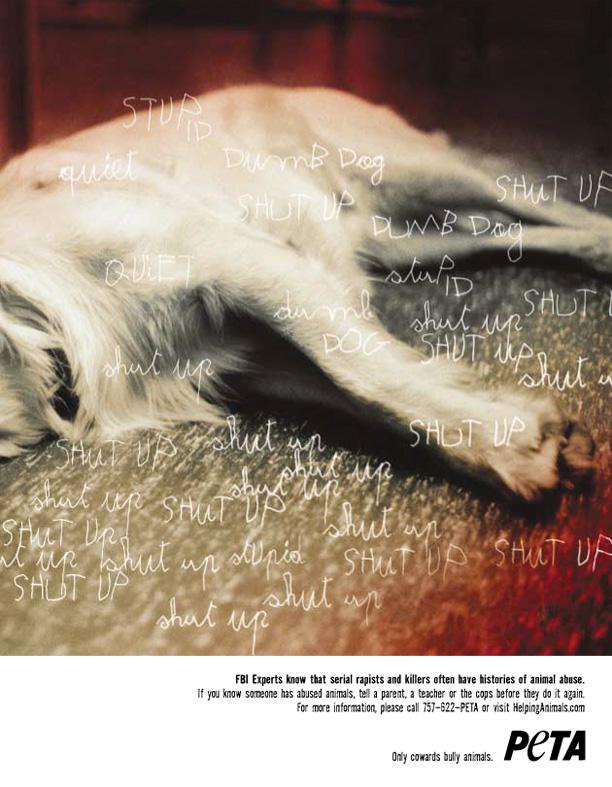 STUPID
quiet
DUMB Dog
SHUT UP
SHUT UP
DUMB Dog
QUiET
stuPID
dumb
DOG
SHUT U
shut up
SHUT UP
shut up
shut u
SHUT UP
SHUT UP
shut up
shut up
shut up
shut up
SHUT UP
shut up
SHUT UP
ut up
shut up
stUpid
SHUT UP
SHUT UP
SHUT UP
shut up
shut up
FBI Experts know that serial rapists and killers often have histories of animal abuse.
If you know someone has abused animals, tell a parent, a teacher or the cops before they do it again.
For more information, please call 757-622-PETA or visit HelpingAnimals.com
Only cowards bully animals. PETA